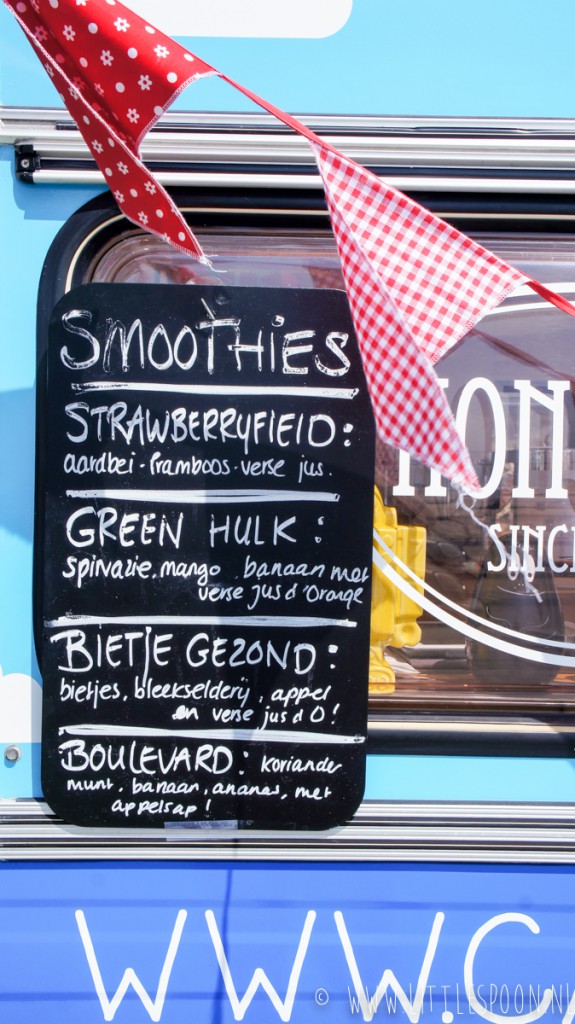 SMOOTHIES
STRAWBERRYFIElD:
aardbei - framboos - verse jus.
GREEN HULK:
spinazie, mango, banaan met
verse jus d'Orange
BIETJE GEZOND:
bietjes, bleekselderij, appel
en verse jus d'O!
BOULEVARD: koriander
munt, banaan, ananas, met
appelsap!
HON
SINC
WWW.C
© WWW.LITTLESPOON.NL